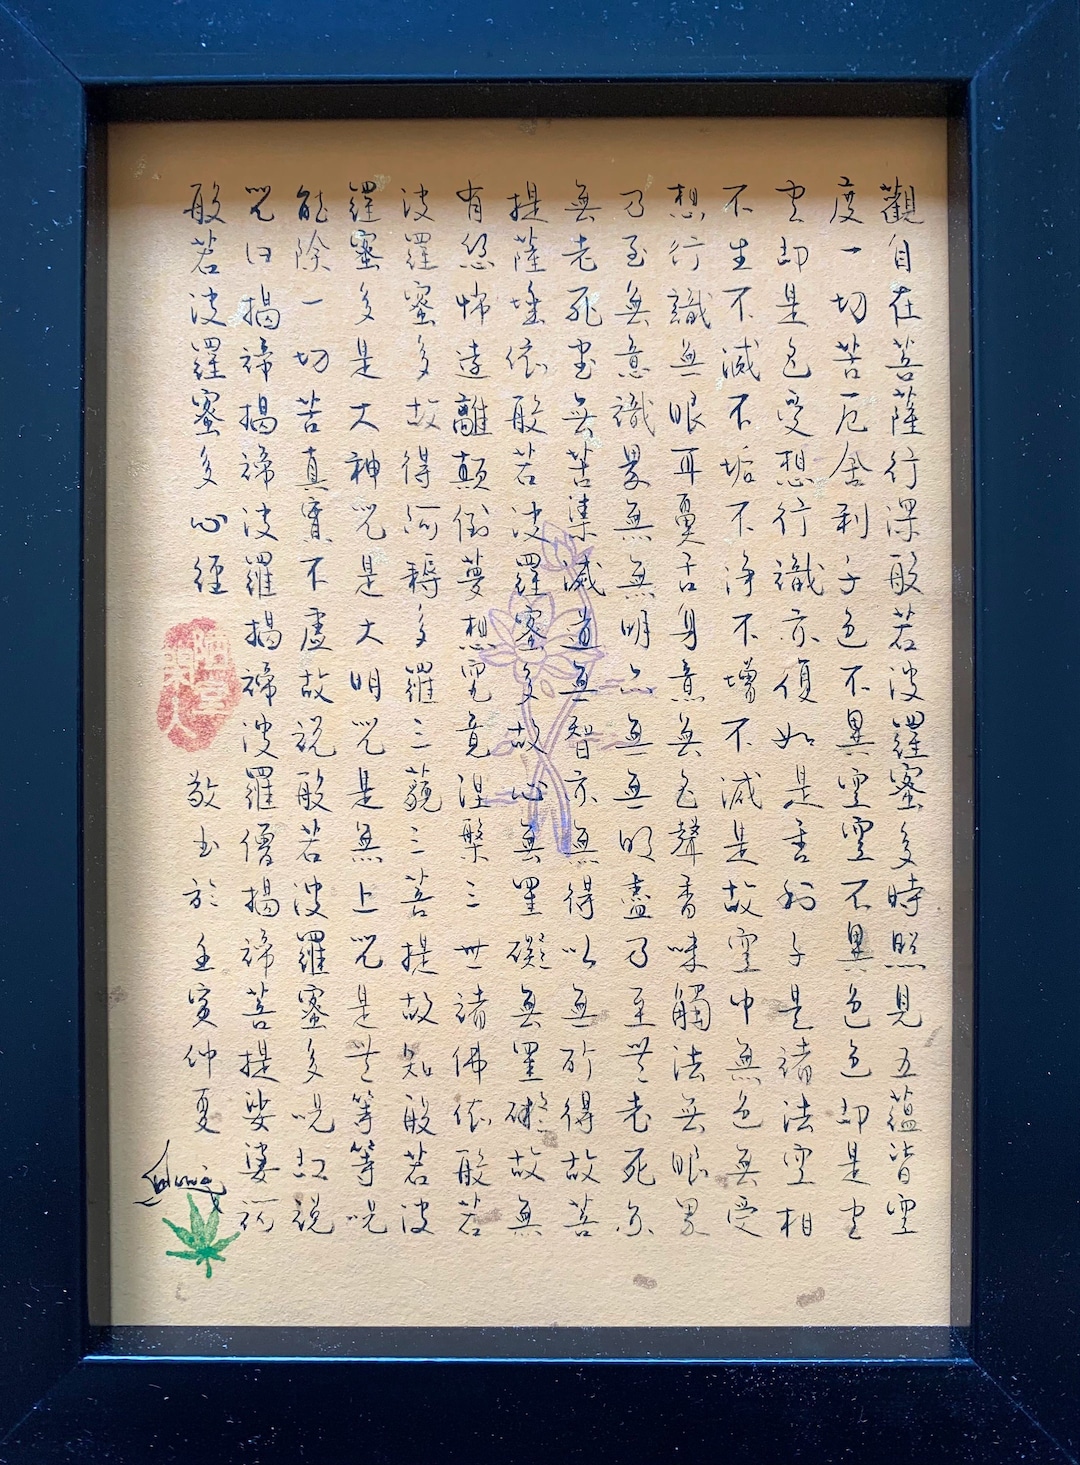 觀自在菩薩行深般若波羅蜜多時照見五蘊皆空
度一切苦厄舍利子色不異空空不異色色即是空
空即是色受想行識亦復如是舍利子是諸法空相
不生不滅不垢不淨不增不減是故空中無色無受
想行識無眼耳鼻舌身意無色聲香味觸法無眼界
乃至無意識界無無明亦無無明盡乃至無老死亦
無老死盡無苦集滅道無智亦無得以無所得故菩
提薩埵依般若波羅蜜多故心無罣礙無罣礙故無
有恐怖遠離顛倒夢想究竟涅槃三世諸佛依般若
波羅蜜多故得阿耨多羅三藐三菩提故知般若波
羅蜜多是大神咒是大明咒是無上咒是無等等咒
能除一切苦真實不虛故說般若波羅蜜多咒故說
咒曰揭諦揭諦波羅揭諦波羅僧揭諦菩提娑婆訶
般若波羅蜜多心經 敬書於壬寅仲夏